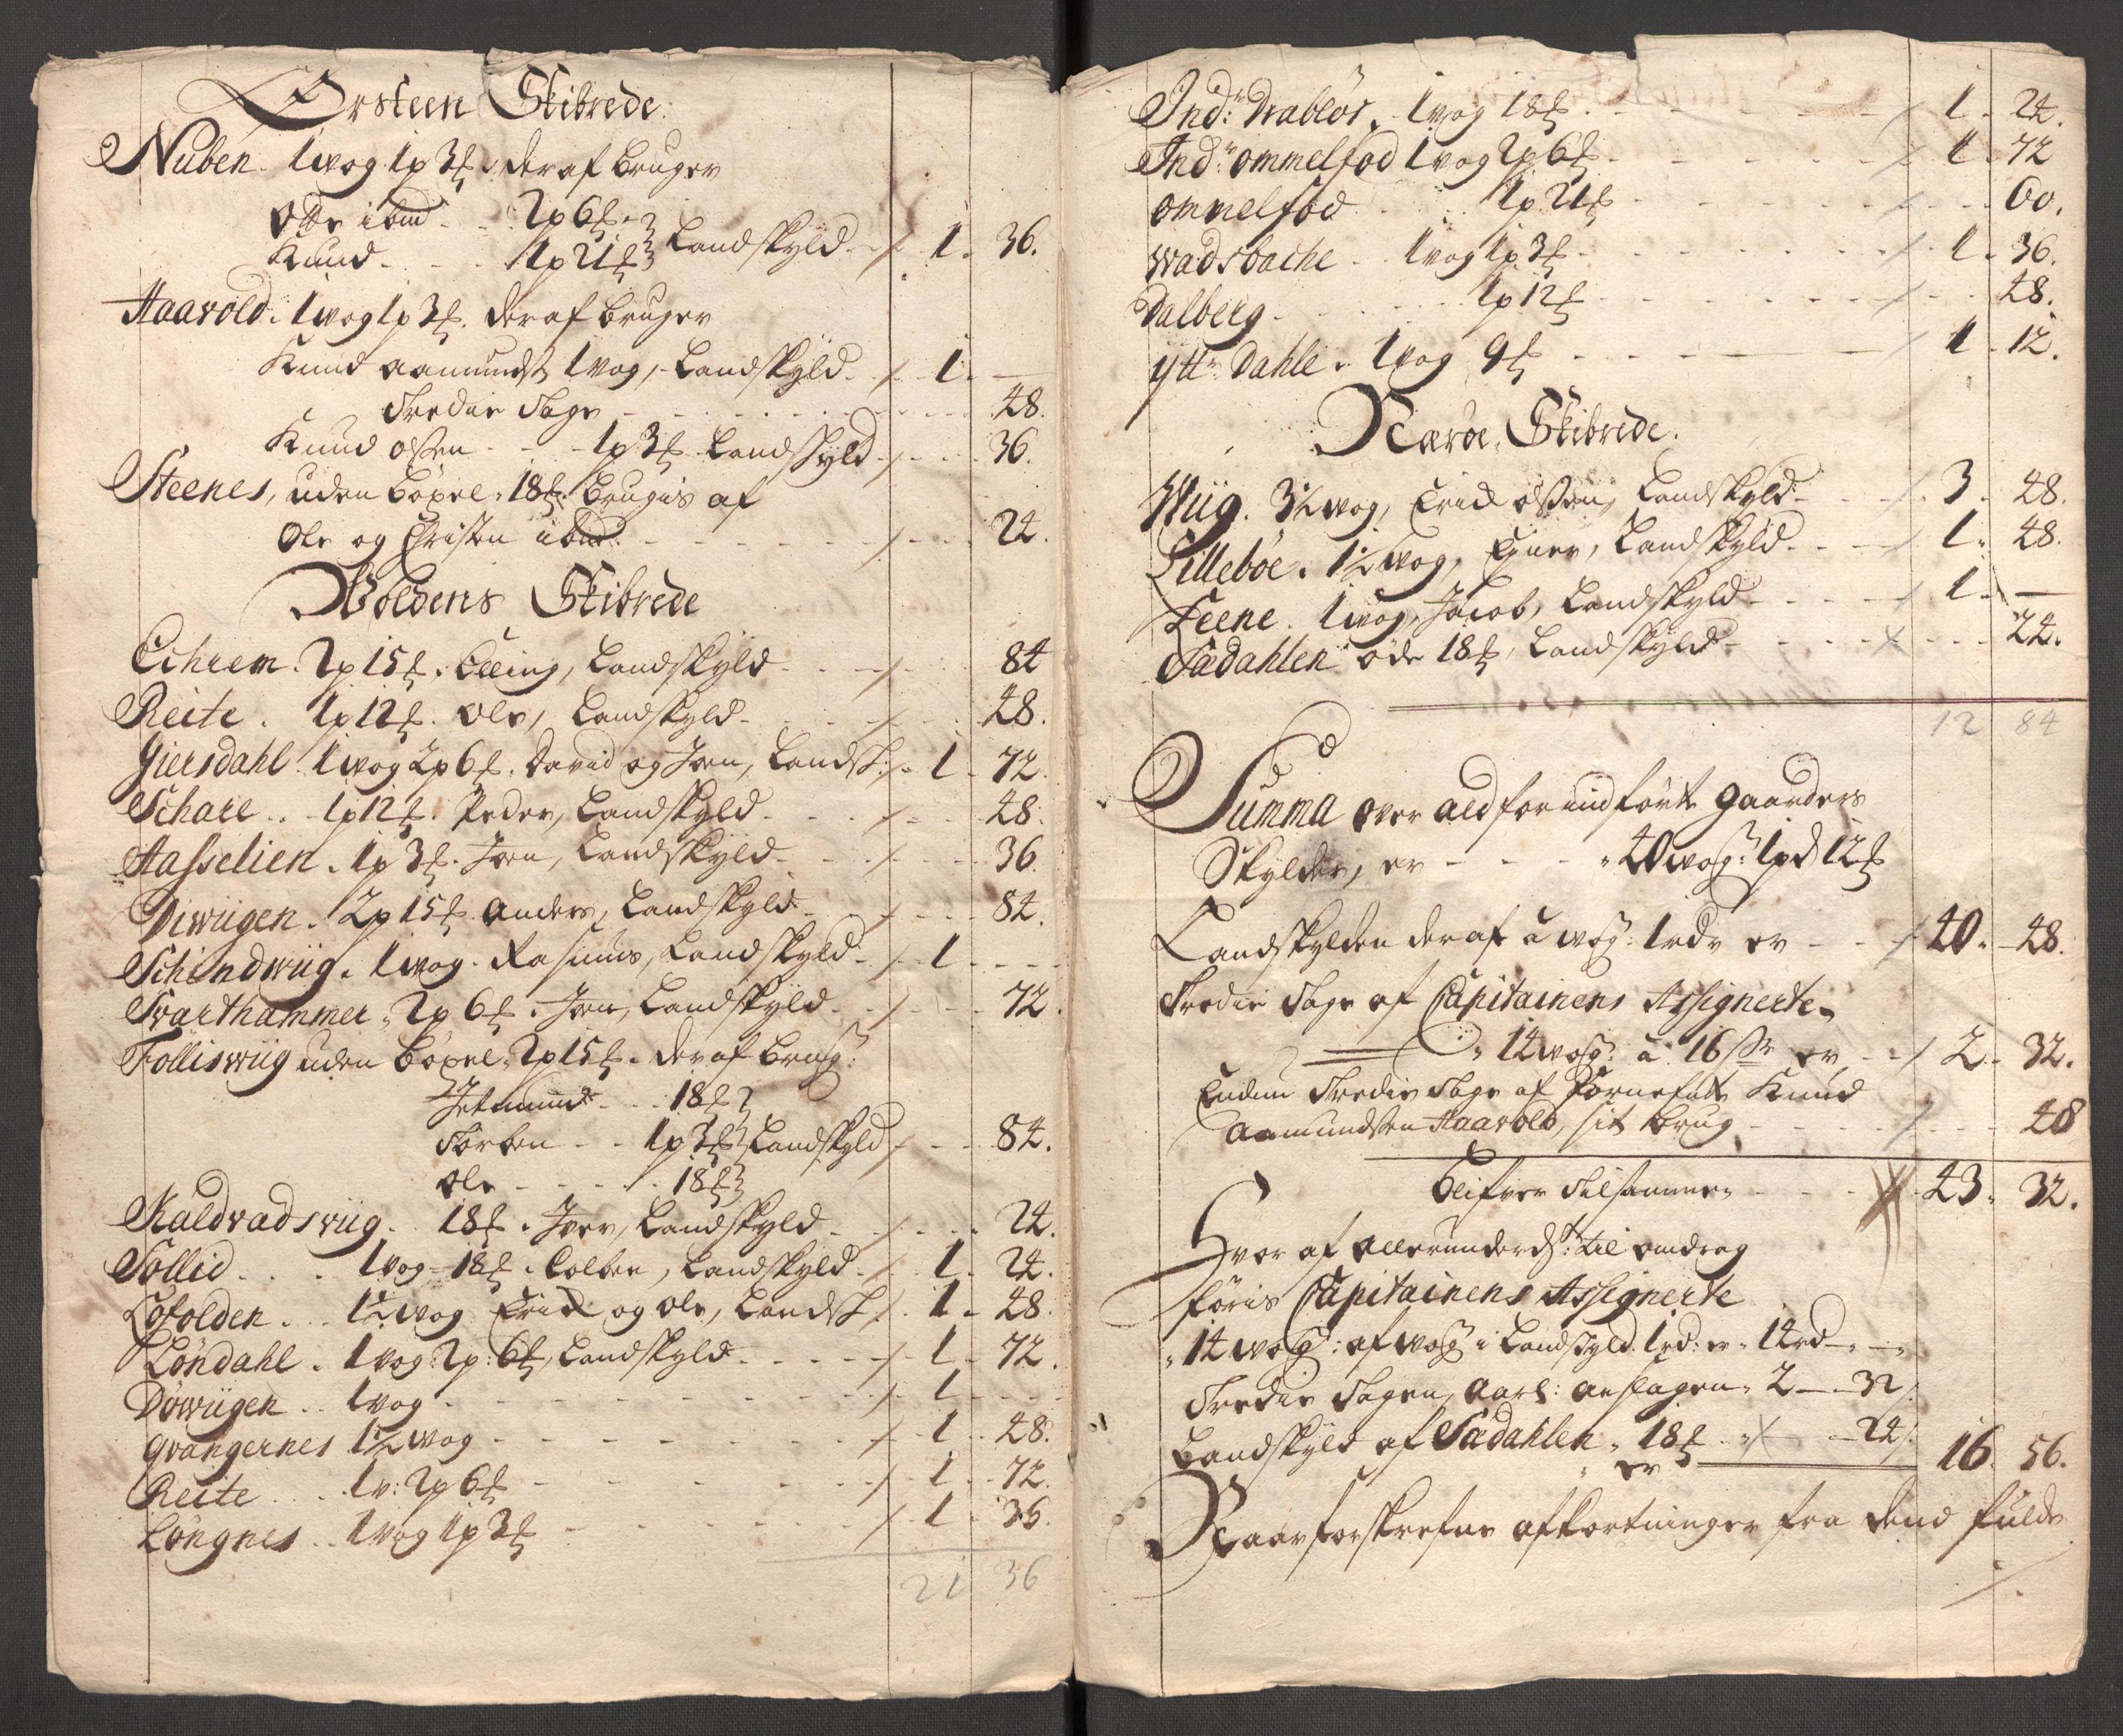 Ørsteen Skibrede
Nuben. 1 wog 1p 3℔. deraf bruger
Otte ibm - - 2p 6℔
Knud - - 1p 21℔ Landskÿld - 1. 36.
Haavold. 1 wog 1p 3℔. deraf bruger
Knud Aamundss. 1 wog, Landskÿld - 1. —
Tredie Tage - 48.
Knud Olsen - - 1p 3℔ Landskÿld - 36.
Steenes, uden böxel. 18℔ brugis af
Ole og Christen ibm - 24.
Woldens Skibrede
Echrem. 2p 15℔. Elling, Landskÿld - 84
Reite. 1p 12℔. Ole, Landskyld - 48.
Giersdahl 1 wog 2p 6℔. David og Joen, Landsk: - 1 - 72.
Schare. . 1p 12℔. Peder, Landskyld - 48.
Hasselien. 1p 3℔. Joen, Landskyld - 36.
Diwiigen. 2p 15℔. Anders, Landskyld - 84.
Schindwiig. 1 wog. Rasmus, Landskyld - 1 - - -
Svarthammer. 2p 6℔. Joen, Landskÿld - 72.
Folliswiig uden böxel. 2p 15℔. deraf brug:
Jetmund - - 18℔
Torben - - 1p 3℔ Landskyld - 84.
Ole - - - 18℔
Kaldvadswiig. 18℔. Iver, Landskyld - 24.
Follid . . . 1 wog - 18℔. Colben, Landskyld - 1. 24.
Löfolden. . . 1½ wog Erich og Ole, Landsk: 1 - 48.
Löndahl. 1 vog: 2p: 6℔, Landskyld - 1 - 72.
Döwiigen . . 1 vog - 1 - - -
Qvangernes 1½ wog - 1 . . 48.
Reite . . . 1 v: 2p 6℔ - 1 . . 72.
Löngnes . . 1 vog 1p 3℔ - 1 - 36.
21 36
Ind:r Drablös. 1 vog 18℔ - 1 - 24.
Ind:r Ommelfod 1 vog 2p 6℔ - 1 - 72
Ommelfod 1p. 21℔ - 60.
Wadsbache 1 vog 1p 3℔ - 1 - 36.
Dalberg 1p 12℔ - 48.
Ytt:r Dahle. 1 vog 9℔ - 1 - 12.
Haröe Skibrede.
Wiig. 3½ wog, Erich Olsen, Landskyld - 3 - 48.
Lilleböe. 1½ wog, Einer, Landskyld - 1 - 48.
Leene. 1 wog, Jacob, Landskyld - 1 - —
Sædahlen öde 18℔, Landskyld - 24.
12 84
Summa over ald forindförte Gaarders
Skylder, er - - - 40 wog: 1 pd 12℔
Landskylden deraf à wog: 1 rdr er - - 40 - 48.
Tredie Tage af Capitainens Assignerte
14 wog: à 16 sk er - 2 - 32.
Endnu Tredie Tage af fornefnte Knud
Aamundsen Haavold, sit brug - - 48
Blifver tilsammen - - 43. 32.
Hvor af allerunderd:st til omdrag
föris Capitainens Assignerte
14 wog: af wog i Landskyld 1 rd: er. 14 rd - -
Tredie Tagen, aarl: anslagen. 2 - 32
Landskyld af Sædahlen. 18℔ - 24
er 16. 56.
Naar forskrefne afkortninger fra dend fulde